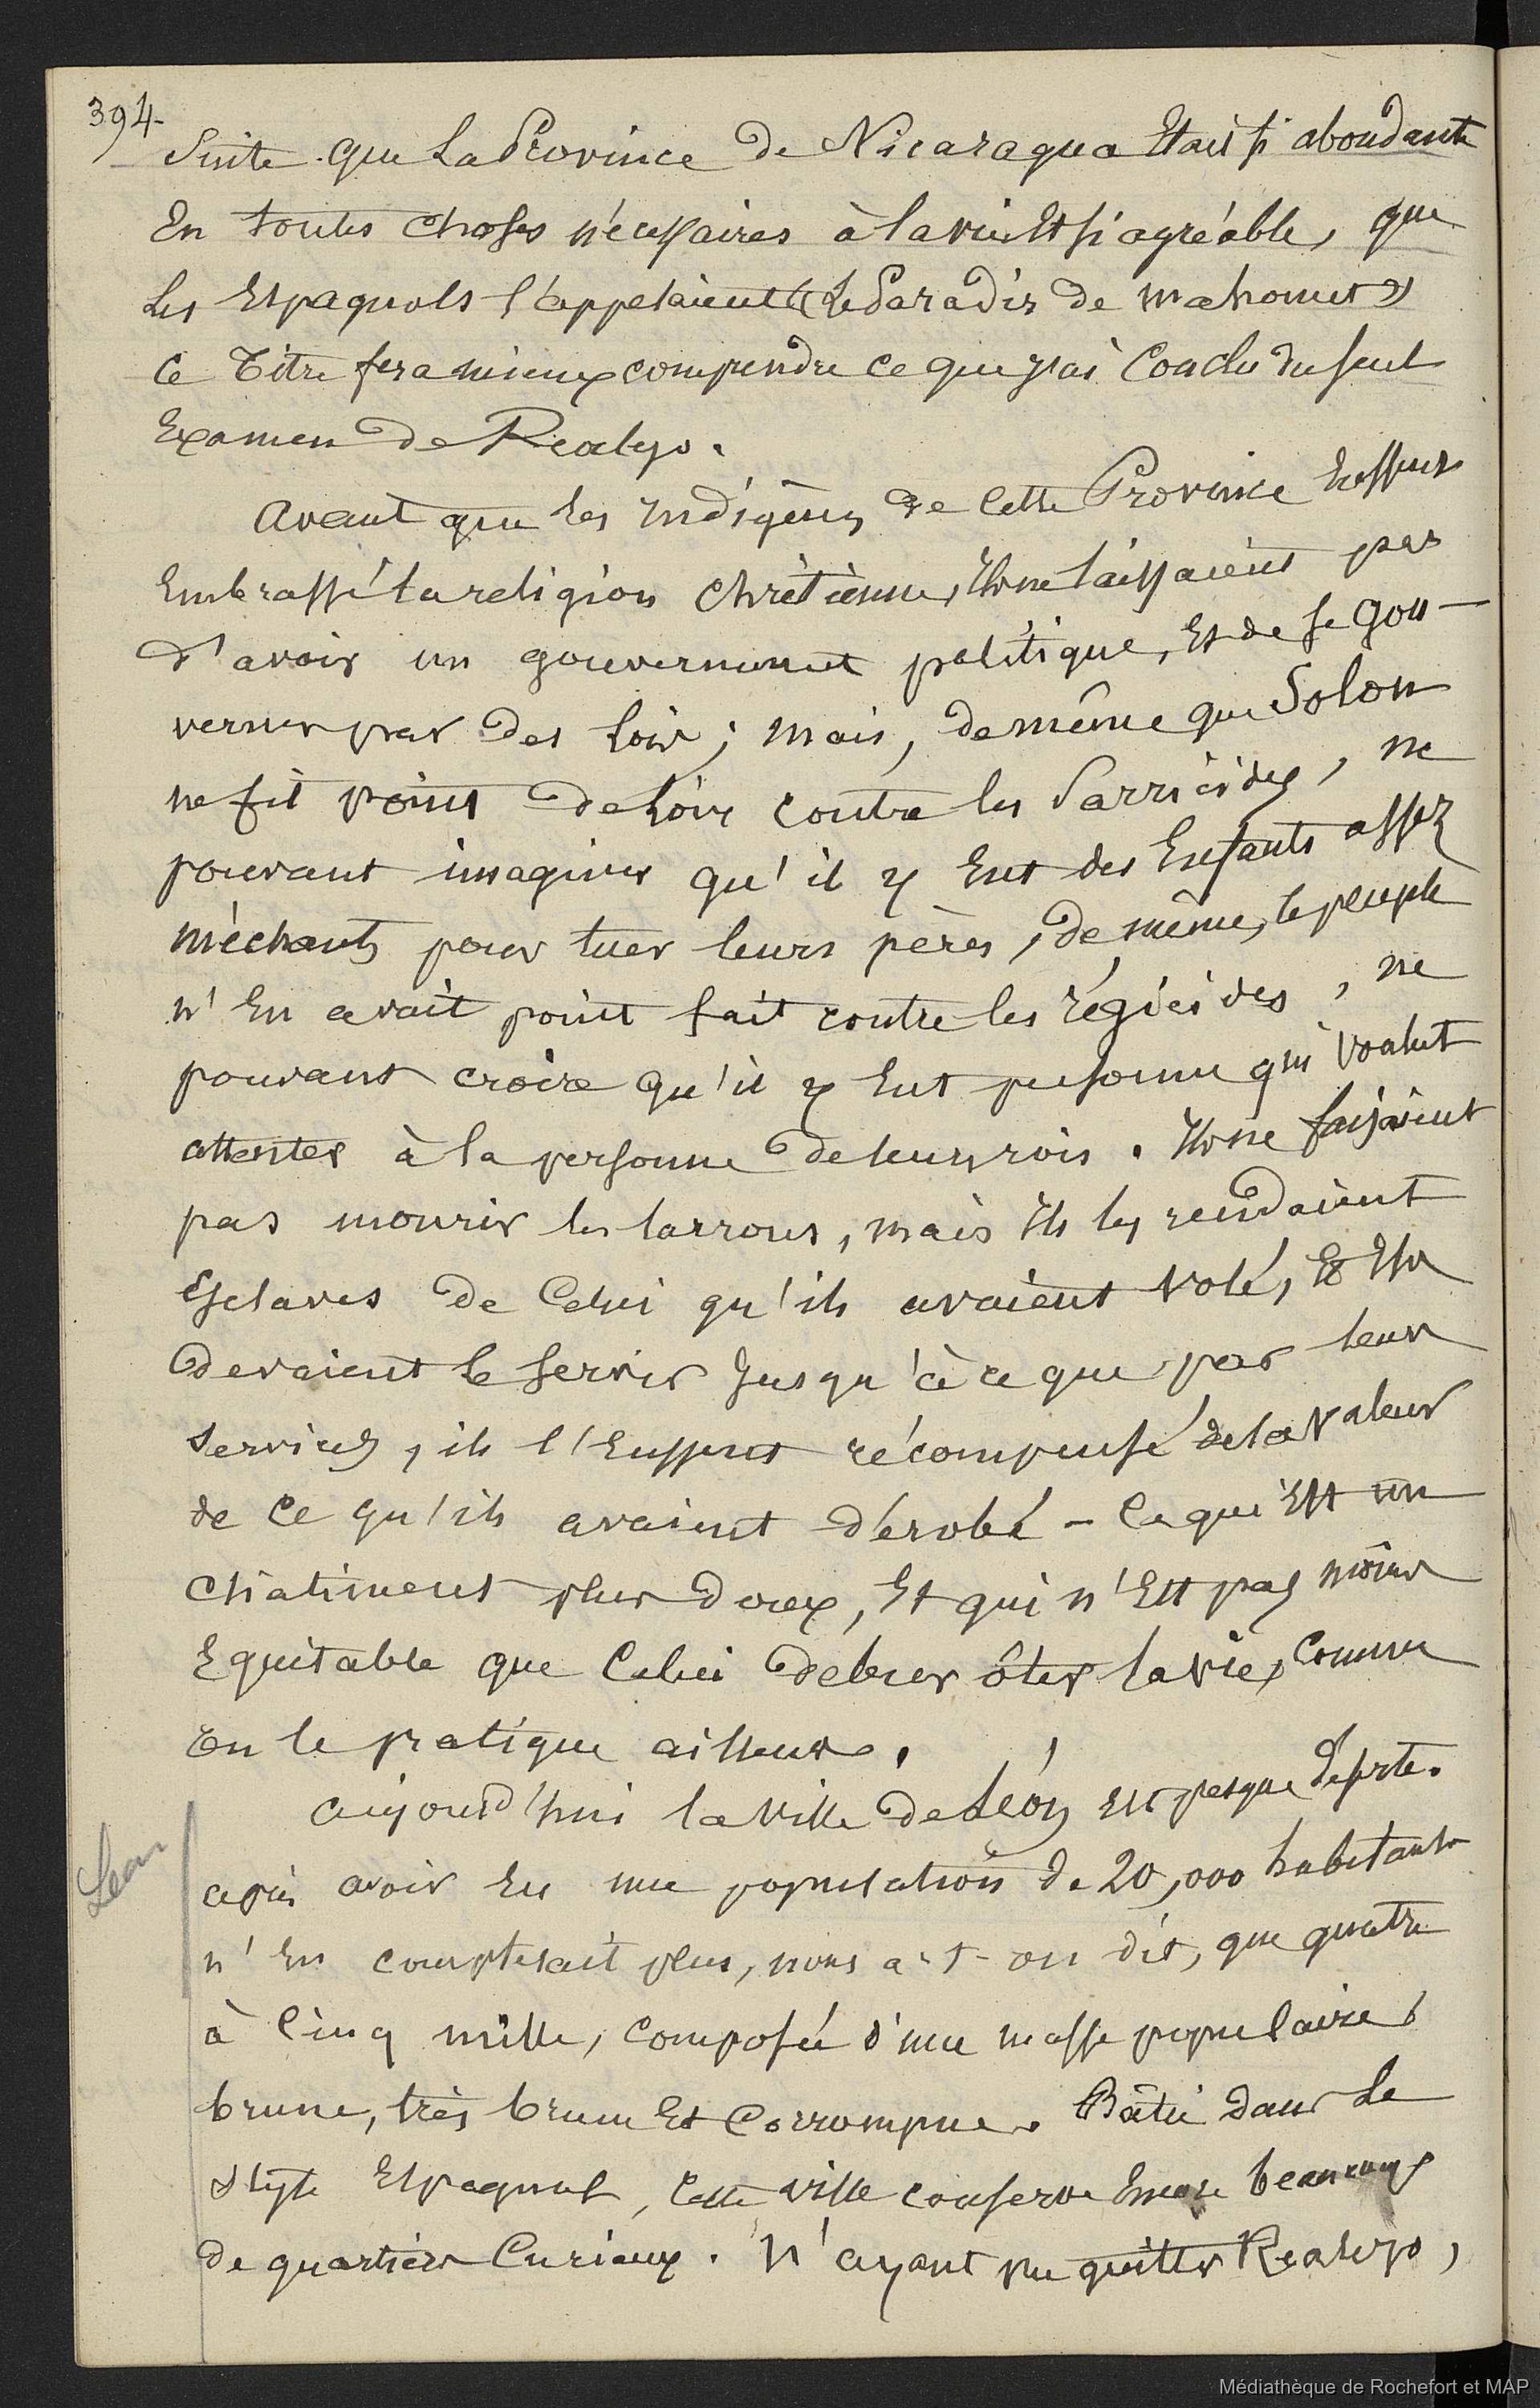 394
Suite que La Province de Nicaragua Etait si abondante
En toutes choses nécessaires à la vie Et si agréable, que
Les Espagnols l'appelaient « Le Paradis de mahomet »
Ce Titre fera mieux comprendre ce que j'ai Conclu du seul
Examen de Realejo.
Avant que les indigènes de cette Province Eussent
Embrassé la religion chrétienne, Ils ne laissaient pas
d'avoir un gouvernement politique, Et de se gou-
verner par des Lois ; mais, de même que Solon
ne fit point de Loix contre les Parricides, ne
pouvant imaginer qu'il y Eut des Enfants assez
méchants pour tuer leurs pères, de même, le peuple
n'En avait point fait contre les régicides, ne
pouvant croire qu'il y Eut personne qui voulut
attenter à la personne de leurs rois. Ils ne faisaient
pas mourir les larrons, mais Ils les rendaient
Esclaves de Celui qu'ils avaient volé, Et Ils
devaient le servir Jusqu'à ce que par leurs
services, ils l'Eussent récompensé de la valeur
de Ce qu'ils avaient dérobé - Ce qui Est un
chatiment plus doux, Et qui n'Est pas moins
Equitable que Celui de leur ôter la vie, Comme
on le pratique ailleurs.
Aujourd'hui la ville de Léon Est presque déserte.
après avoir Eu une population de 20,000 habitants
n'En compterait plus, nous a-t-on dit, que quatre
à Cinq mille, Composée d'une masse populaire
brune, très brune Et Corrompue. Bâtie dans Le
style Espagnol, Cette ville conserve Encore beaucoup
de quartiers Curieux. N'ayant pu quitter Realejo,
Léon
Médiathèque de Rochefort et MAP